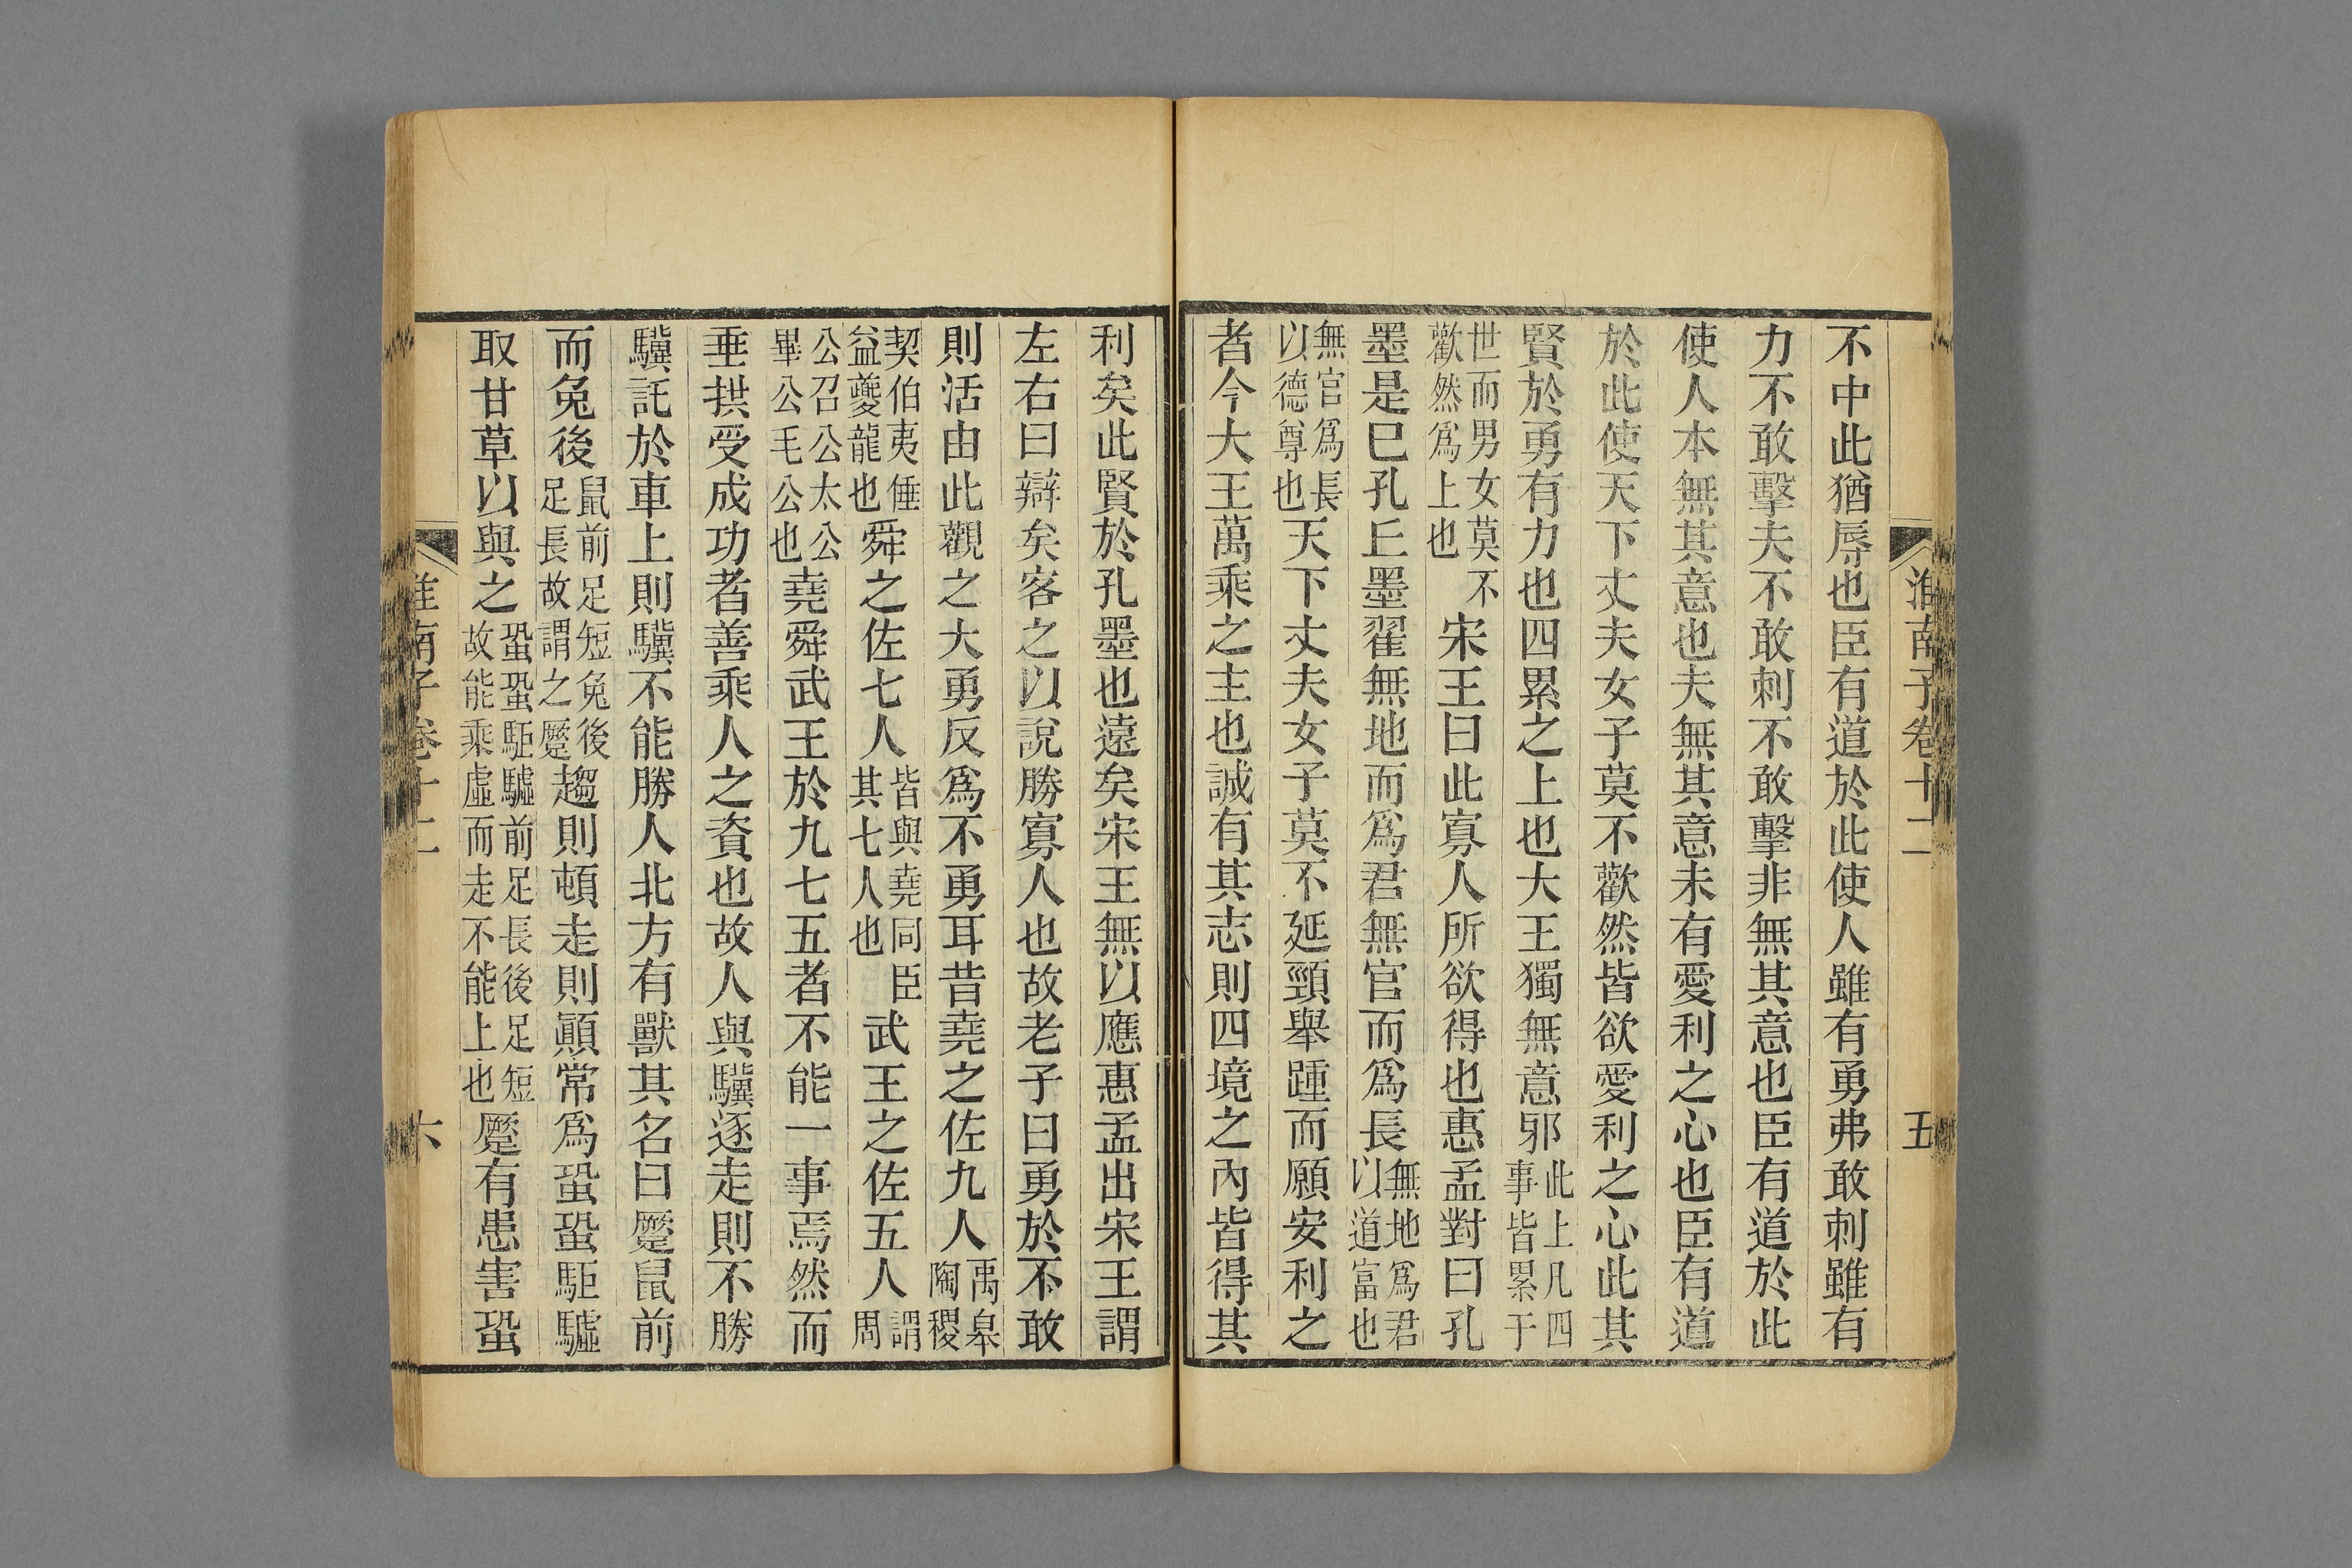 淮南子卷十二 五
不中此猶辱也臣有道於此使人雖有勇弗敢刺雖有
力不敢擊夫不敢刺不敢擊非無其意也臣有道於此
使人本無其意也夫無其意未有愛利之心也臣有道
於此使天下丈夫女子莫不歡然皆欲愛利之心此其
賢於勇有力也四累之上也大王獨無意邪此上凡四事皆累于
世而男女莫不歡然爲上也宋王曰此寡人所欲得也惠孟對曰孔
墨是已孔丘墨翟無地而爲君無官而爲長無地爲君以道富也
無官爲長以德尊也天下丈夫女子莫不延頸舉踵而願安利之
者今大王萬乘之主也誠有其志則四境之內皆得其
利矣此賢於孔墨也遠矣宋王無以應惠孟出宋王謂
左右曰辯矣客之以說勝寡人也故老子曰勇於不敢
則活由此觀之大勇反爲不勇耳昔堯之佐九人禹皋陶稷
契伯夷倕益夔龍也舜之佐七人皆與堯同臣其七人也武王之佐五人謂周
公召公太公畢公毛公也堯舜武王於九七五者不能一事焉然而
垂拱受成功者善乘人之資也故人與驥逐走則不勝
驥託於車上則驥不能勝人北方有獸其名曰蹷鼠前
而兔後鼠前足短兔後足長故謂之蹷趨則頓走則顚常爲蛩蛩駏驉
取甘草以與之蛩蛩駏驉前足長後足短故能乘虛而走不能上也蹷有患害蛩
淮南子卷十二 六